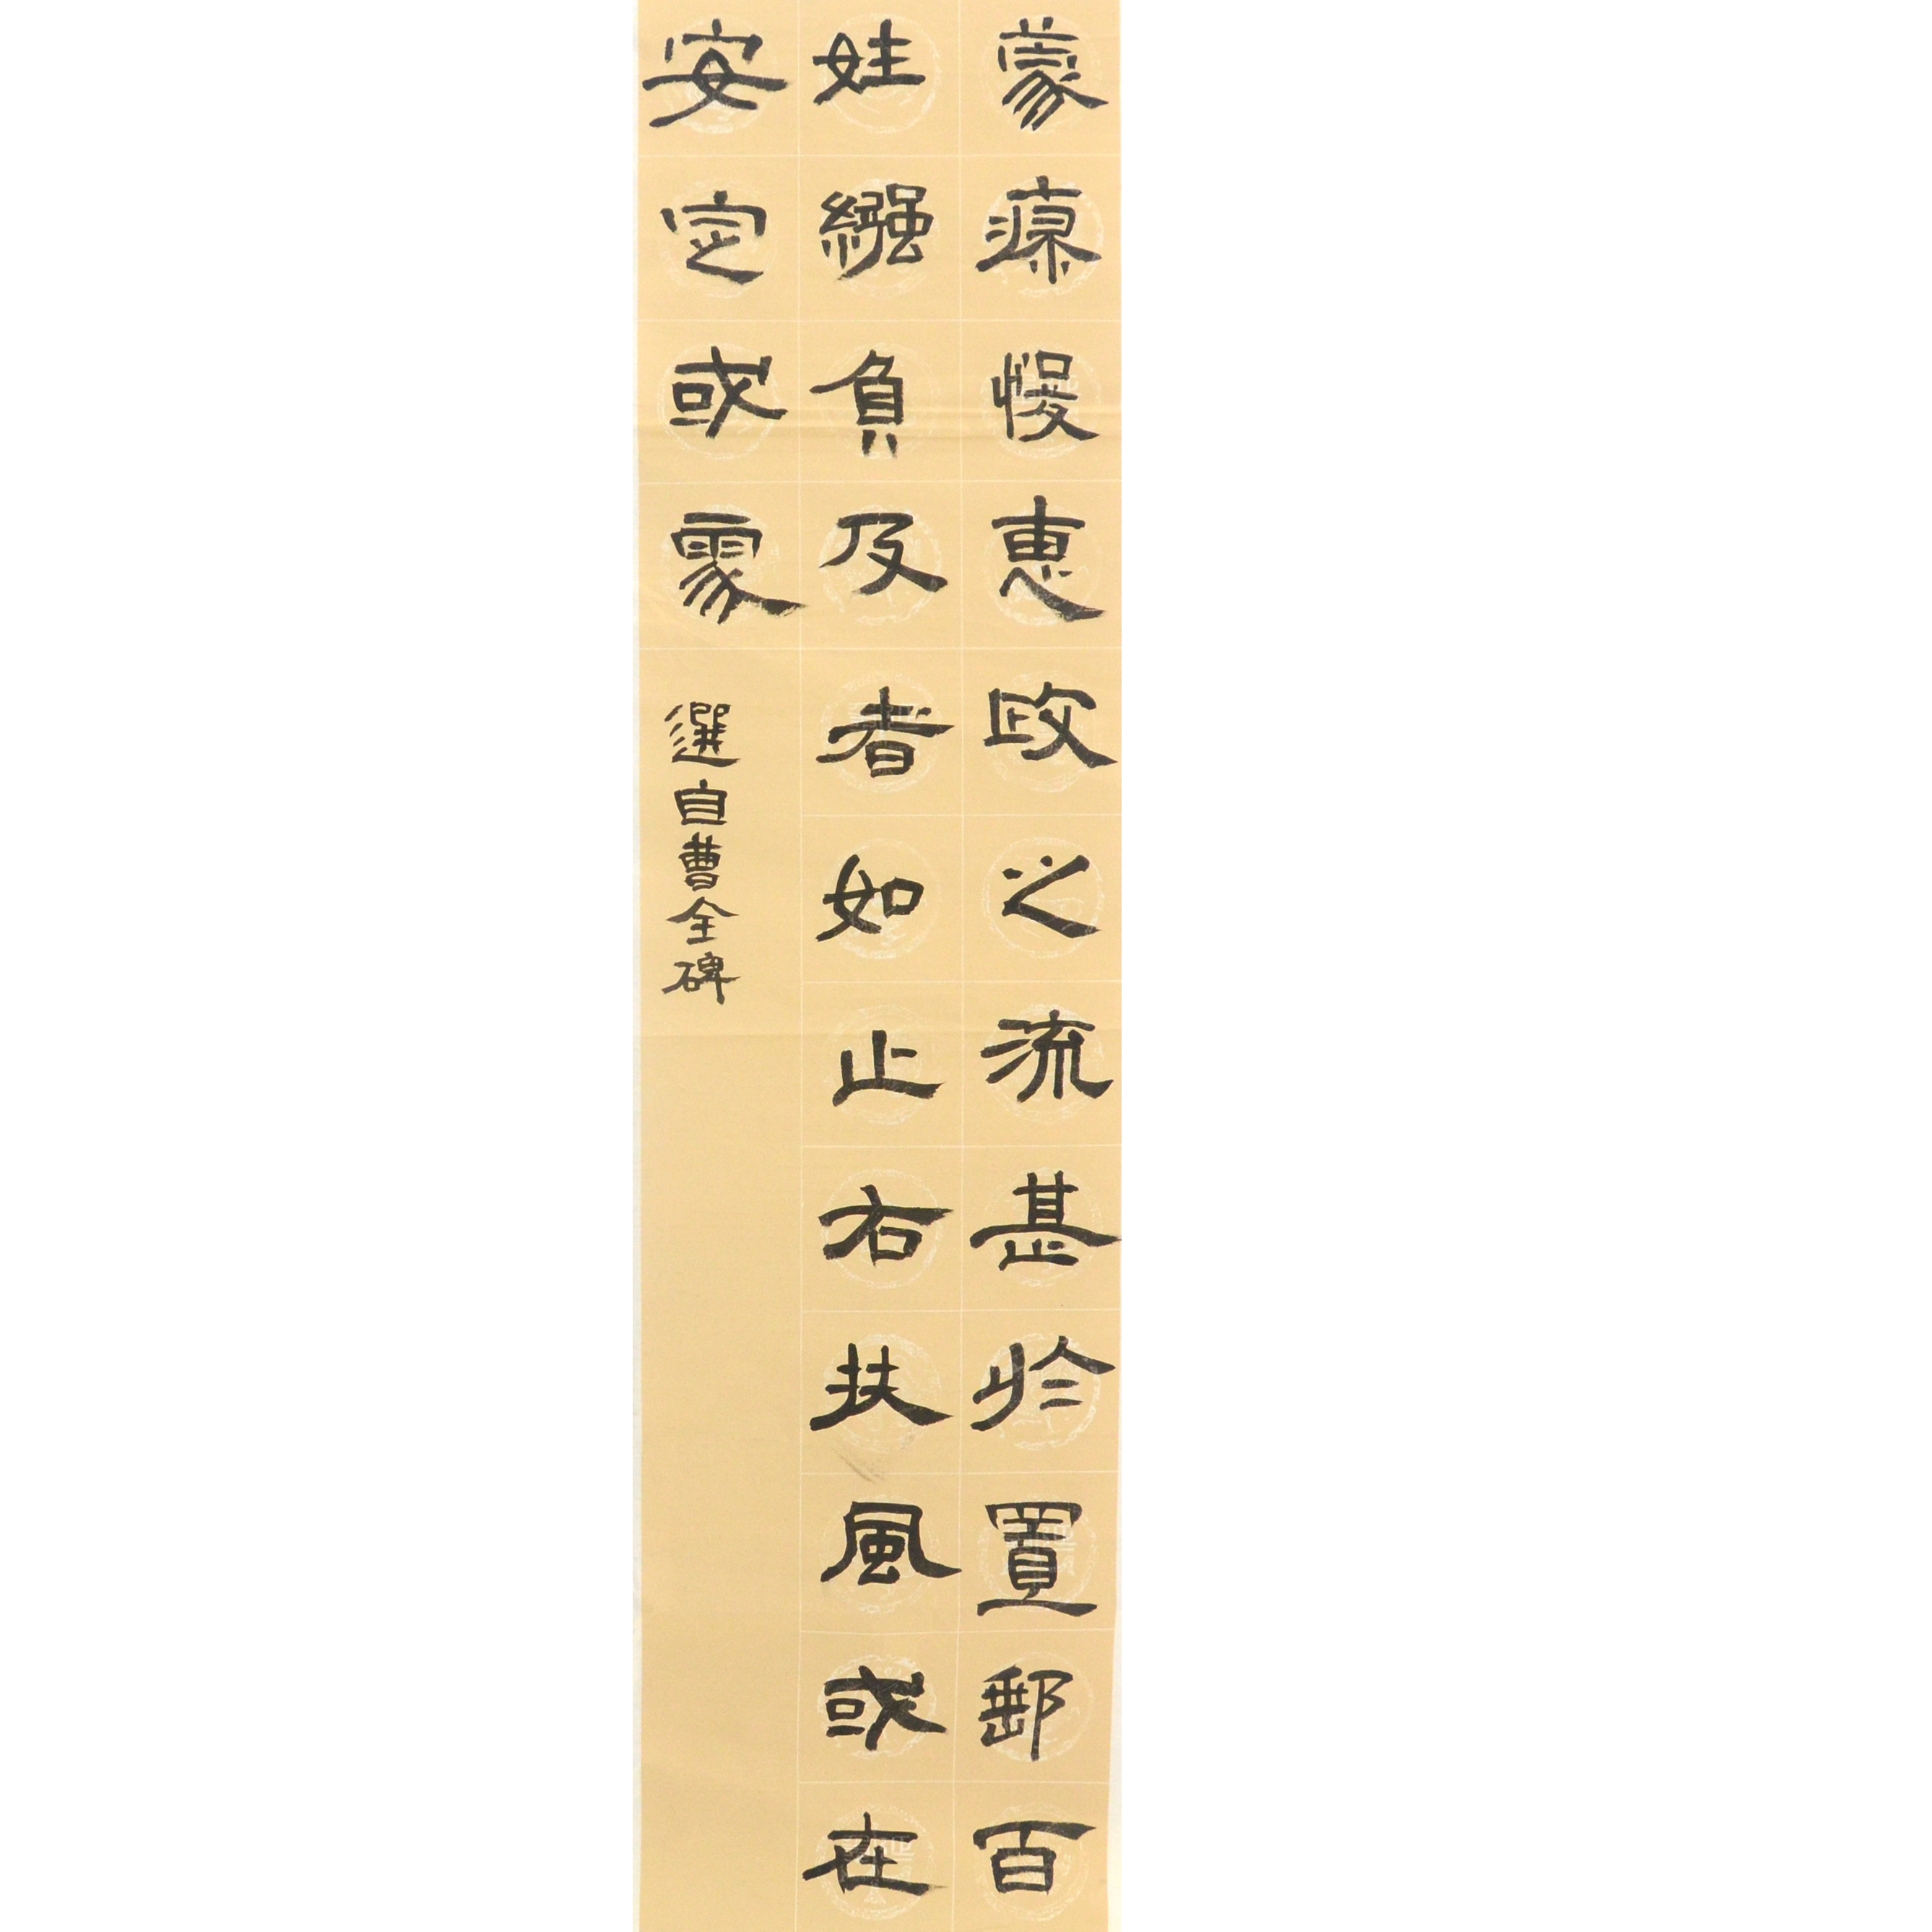 蒙瘳悛惠政之流甚於置郵百
姓繈負反者如止右扶風或在
安定或處
選自曹全碑